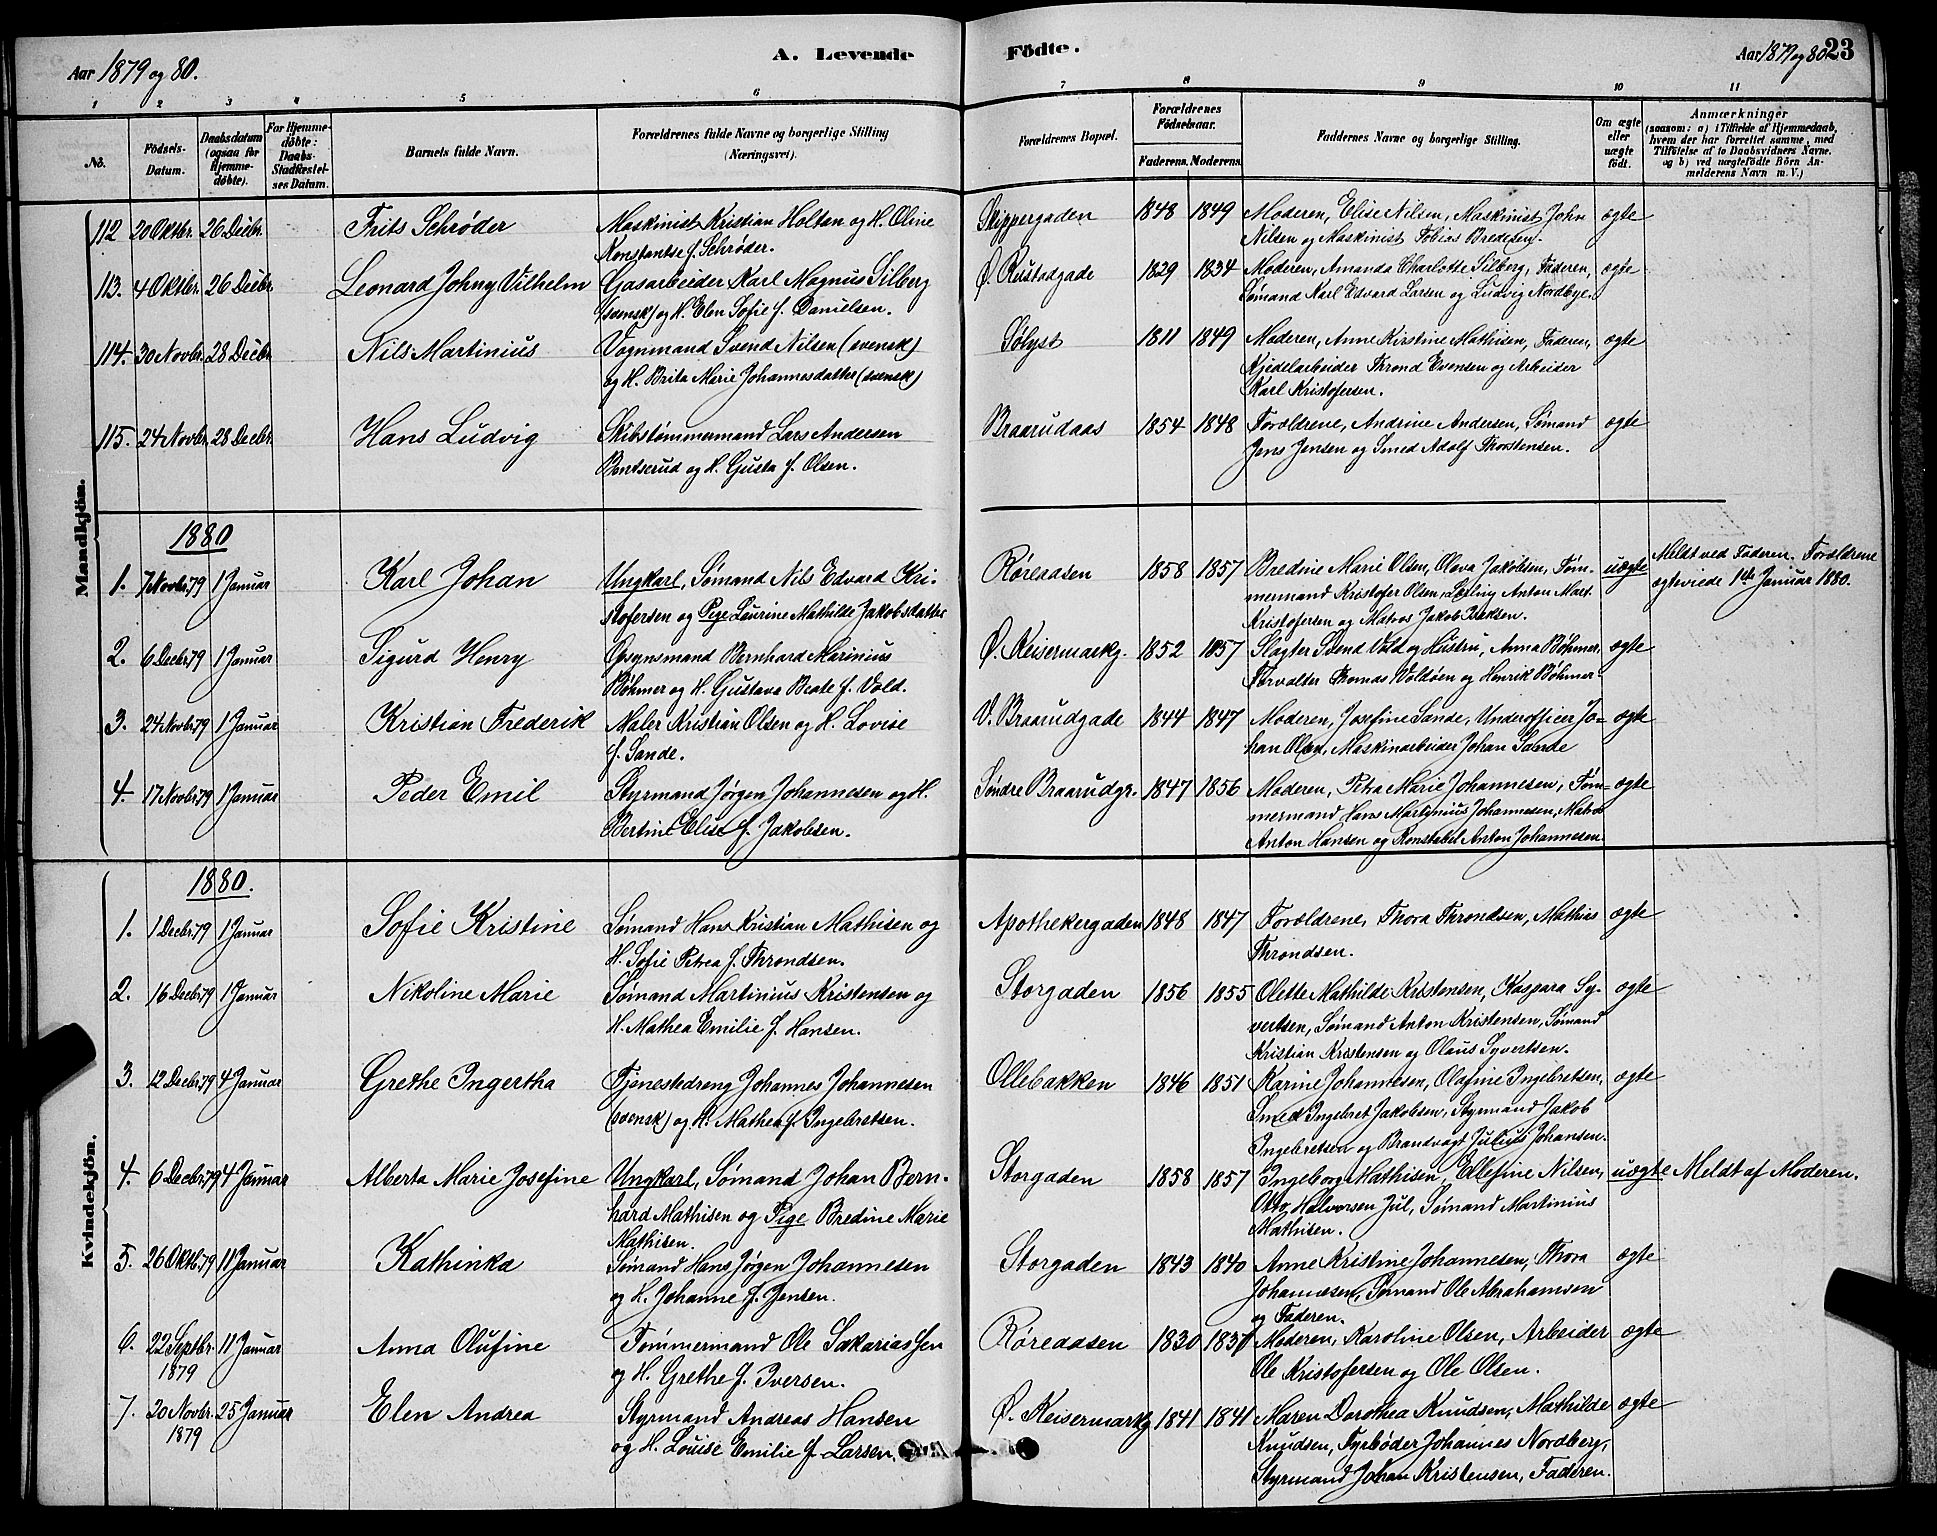 Aar 1879 og 80.
A. Levende Födte.
Aar 1879 og 80. 23
1 2 3 4 5 6 7 8 9 10 11
No.
Födsels-Datum.
Daabsdatum (ogsaa for Hjemme-döbte).
For Hjemme-döbte: Daabs-Stadfæstel-ses Datum.
Barnets fulde Navn.
Forældrenes fulde Navne og borgerlige Stilling (Næringsvei).
Forældrenes Bopæl.
Forældrenes Födselsaar.
Faderens. Moderens.
Faddernes Navne og borgerlige Stilling.
Om ægte eller uægte födt.
Anmærkninger
(saasom: a) i Tilfælde af Hjemmedaab,
hvem der har forrettet samme, med
Tilföielse af to Daabsvidners Navne.
og b) ved uægtefödte Börn An-
melderens Navn m. V.)
Mandkjön.
112 20 Oktbr. 26 Decbr. Frits Schrøder Maskinist Kristian Holtan og H. Oline Skippergaden 1848 1849 Moderen, Elise Nilsen, Maskinist John ægte
Konstantse f. Schrøder. Nilsen og Maskinist Tobias Bredesen.
113. 4 Oktbr. 26 Decbr. Leonard Johny Vilhelm Gasarbeider Karl Magnus Silberg Ø. Rustadgade 1829 1834 Moderen, Amanda Charlotte Silberg, Faderen, ægte
(svensk) og H. Elen Sofie f. Danielsen. Sømand Karl Edvard Larsen og Ludvig Nordbye.
114. 30 Novbr. 28 Decbr. Nils Martinius Vognmand Svend Nilsen (svensk) Sølyst 1811 1849 Moderen, Anne Kirstine Mathisen, Faderen, ægte
og H. Brita Marie Johannesdatter (svensk) Kjedelarbeider Thrond Evensen og Arbeider
Karl Kristofersen.
115. 24 Novbr. 28 Decbr. Hans Ludvig Skibstømmermand Lars Andersen Braarudaas 1854 1848 Forældrene, Andrine Andersen, Sømand ægte
Bentserud og H. Gusta f. Olsen. Jens Jensen og Smed Adolf Thorstensen.
1880
1. 7 Novbr. 79 1 Januar Karl Johan Ungkarl, Sømand Nils Edvard Kri- Røreaasen 1858 1857 Bredine Marie Olsen, Olava Jakobsen, Tøm- uægte Meldt ved Faderen. Forældrene
stofersen og Pige Laurine Mathilde Jakobsdatter mermand Kristofer Olsen, Anton Mart. ægteviede 14de Januar 1880.
Kristofersen og Matros Jakob Isaksen.
2. 6 Decbr. 79 1 Januar Sigurd Henry Opsynsmand Bernhard Marinius Ø. Keisermarkg. 1852 1857 Slagter Svend Vold og Hustru, Anna Bøhmer, ægte
Bøhmer og H. Gustava Beate f. Vold. Forvalter Thomas Voldøen og Henrik Bøhmer
3. 24 Novbr. 79 1 Januar Kristian Frederik Maler Kristian Olsen og H. Lovise V. Braarudgade 1844 1847 Moderen, Josefine Sande, Underofficer Jo- ægte
f. Sande. han Olsen, Maskinarbeider Johan Sande
4. 17 Novbr. 79 1 Januar Peder Emil Styrmand Jørgen Johannesen og H. Søndre Braarudgr. 1847 1856 Moderen, Petra Marie Johannesen, Tøm- ægte
Bertine Elise f. Jakobsen. mermand Hans Martinius Johannesen, Matros
Anton Hansen og Konstabel Anton Johannesen.
Kvindekjön.
1880.
1. 1 Decbr. 79 1 Januar Sofie Kristine Sømand Hans Kristian Mathisen og Apothekergaden 1848 1847 Forældrene, Thora Throndsen, Mathias ægte
H. Sofie Petrea f. Throndsen. Throndsen.
2. 16 Decbr. 79 1 Januar Nikoline Marie Sømand Martinius Kristensen og Storgaden 1856 1855 Olette Mathilde Kristensen, Kaspara Sy- ægte
H. Mathea Emilie f. Hansen. vertsen, Sømand Anton Kristensen, Sømand
Kristian Kristensen og Olaus Syvertsen.
3. 12 Decbr. 79 4 Januar Grethe Ingertha Tjenestedreng Johannes Johannesen Ollebakken 1846 1851 Karine Johannesen, Olafine Ingebretsen, ægte
(svensk) og H. Mathea f. Ingebretsen. Smed Ingebret Jakobsen, Styrmand Jakob
Ingebretsen og Brandvagt Julius Johansen.
4. 6 Decbr. 79 4 Januar Alberta Marie Josefine Ungkarl, Sømand Johan Bern- Storgaden 1858 1857 Ingeborg Mathisen, Ellefine Nilsen, uægte Meldt af Moderen.
hard Mathisen og Pige Bredine Marie Otto Halvorsen Jul, Sømand Martinius
Mathisen. Mathisen.
5. 26 Oktb. 79 11 Januar Kathinka Sømand Hans Jørgen Johannesen Storgaden 1843 1840 Anne Kristine Johannesen, Thora ægte
og H. Johanne f. Jensen. Johannesen, Sømand Ole Abrahamsen
og Faderen.
6. 22 Septbr. 11 Januar Anna Olufine Tømmermand Ole Sakariassen Røreaasen 1830 1837 Moderen, Karoline Olsen, Arbeider ægte
1879 og H. Grethe f. Iversen. Ole Kristofersen og Ole Olsen.
7. 20 Novbr. 25 Januar Elen Andrea Styrmand Andreas Hansen Ø. Keisermarkg 1841 1841 Maren Dorothea Knudsen, Mathilde ægte
1879 og H. Louise Emilie f. Larsen. Knudsen, Fyrbøder Johannes Nordberg,
Styrmand Johan Kristensen, Faderen.